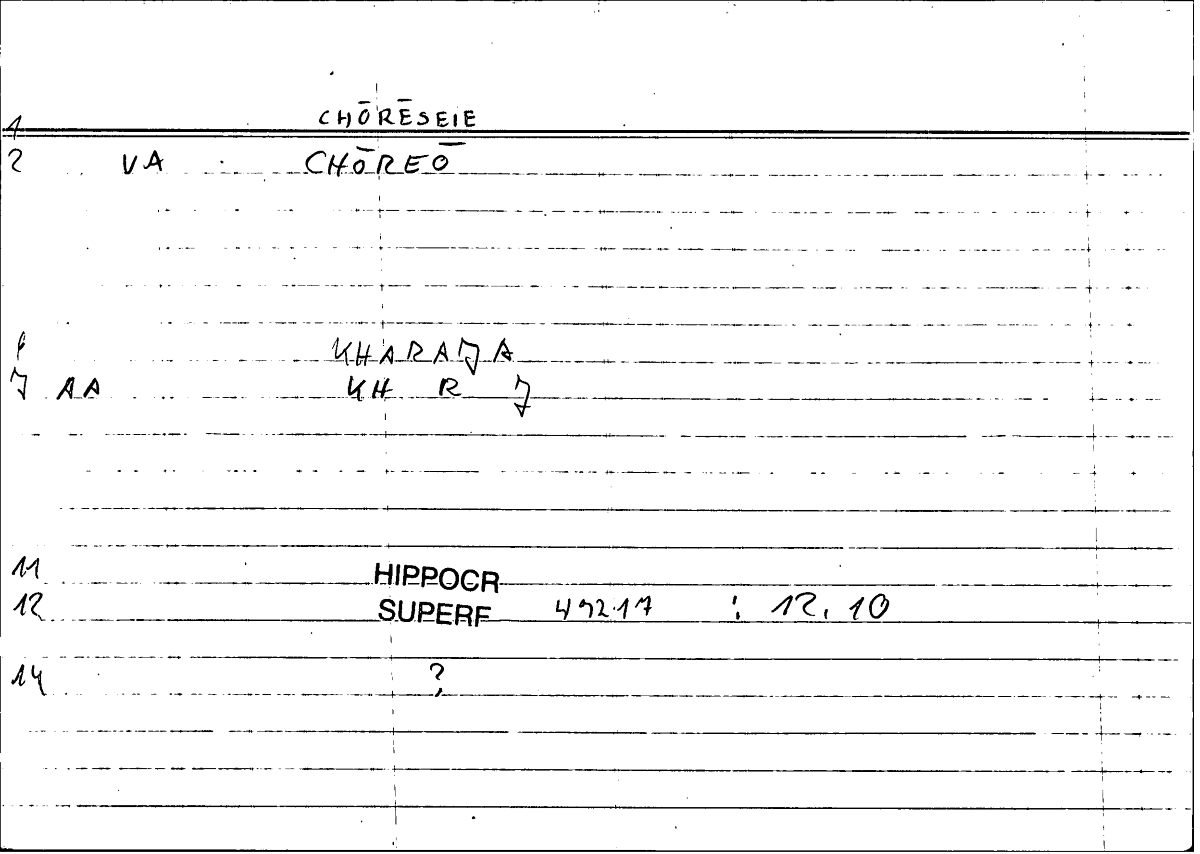 1 CHŌRĒSEIE
2 VA CHŌREŌ
KHARAJA
J AA KH R J
11 HIPPOCR
12 SUPERF 492.17 : 12.10
14 ?